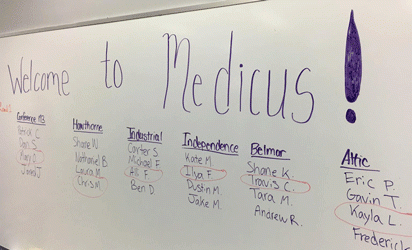 Welcome to Medicus!
Conference 113
C.
Dan S.
D.
Jared J
Hawthorne
Shane W.
Nathaniel B
Laura M.
Chris M.
Industrial
Carter S.
Michael F.
Ali F.
Ben D
Independence
Kate M.
Ilya F.
Dustin M.
Jake M.
Belmar
Shane K.
Travis C.
Tara M.
Andrew R.
Attic
Eric P.
Gavin T.
Kayla L.
Frederick